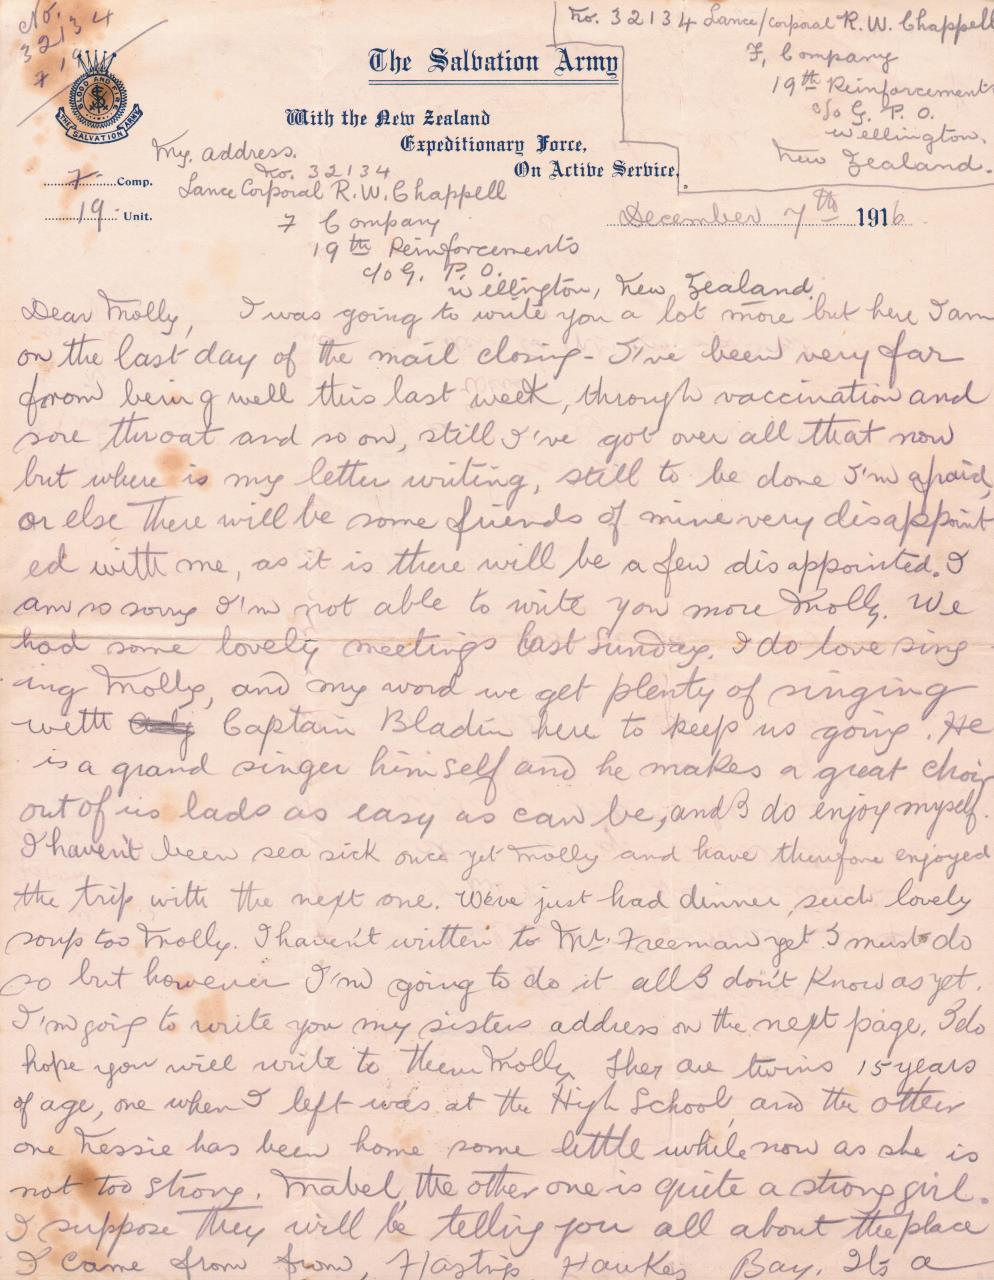 No.
32134
7 19
No. 32134 Lance/Corporal R.W. Chappell
F, Company
19th Reinforcements
c/o G. P. O.
Wellington,
New Zealand.
BLOOD AND FIRE
THE SALVATION ARMY
The Salvation Army
With the New Zealand
Expeditionary Force,
On Active Service.
My address.
No. 32134
7 Comp.
Lance Corporal R.W. Chappell
19 Unit.
7 Company
December 7th 1916
19th Reinforcements
c/o G. P. O.
Wellington, New Zealand.
Dear Molly, I was going to write you a lot more but here I am
on the last day of the mail closing - I've been very far
from being well this last week, through vaccination and
sore throat and so on, still I've got over all that now
but where is my letter writing, still to be done I'm afraid,
or else there will be some friends of mine very disappoint
ed with me, as it is there will be a few disappointed. I
am so sorry I'm not able to write you more Molly. We
had some lovely meetings last Sunday. I do love sing
ing Molly, and my word we get plenty of singing
with Captain Bladin here to keep us going. He
is a grand singer himself and he makes a great choir
out of us lads as easy as can be, and I do enjoy myself.
I haven't been sea sick once yet Molly and have therefore enjoyed
the trip with the next one. We've just had dinner, such lovely
soup too Molly. I haven't written to Mr. Freeman yet I must do
so but however I'm going to do it all I don't know as yet.
I'm going to write you my sisters address on the next page. I do
hope you will write to them Molly. Ther are twins 15 years
of age, one when I left was at the High School, and the other
one Nessie has been home some little while now as she is
not too strong. Mabel, the other one is quite a strong girl.
I suppose they will be telling you all about the place
I came from from, Hastings Hawkes Bay. It's a